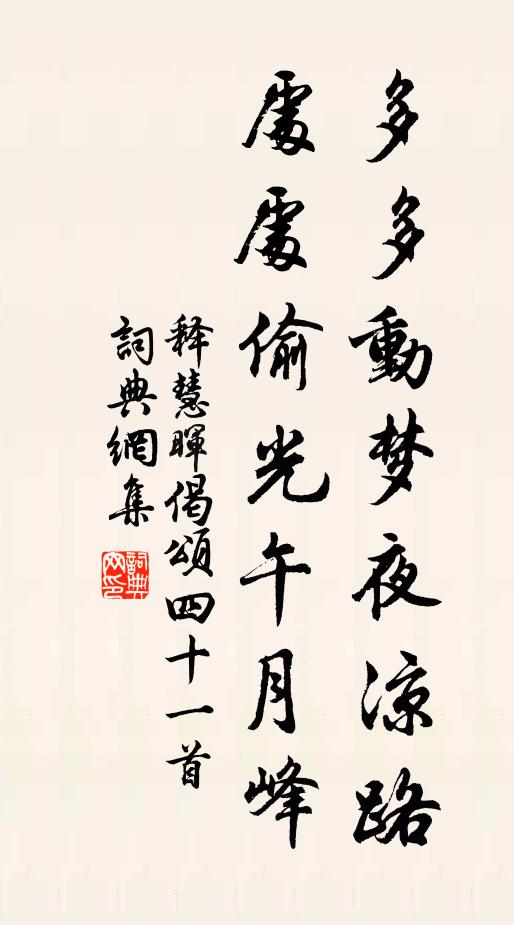 多多動梦夜凉路
處處偷光午月峰
释慧暉偈頌四十一首
詞典網集
詞典网印